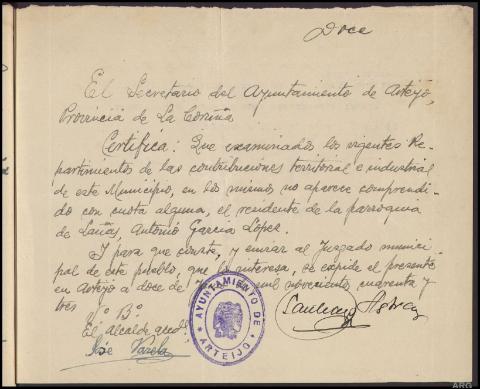 Doce
El Secretario del Ayuntamiento de Arteijo,
Provincia de La Coruña
Certifica: Que examinados los vigentes Re-
partimientos de las contribuciones territorial e industrial
de este Municipio, en los mismos no aparece comprendi-
do con cuota alguna, el residente de la parroquia
de Lañas, Antonio García López.
Y para que conste, y enviar al Juzgado munici-
pal de este pueblo, que lo interesa, se expide el presente
en Arteijo a doce de mil novecientos cuarenta y
tres
Vº Bº
El alcalde
José Varela
AYUNTAMIENTO DE
ARTEIJO
ARG